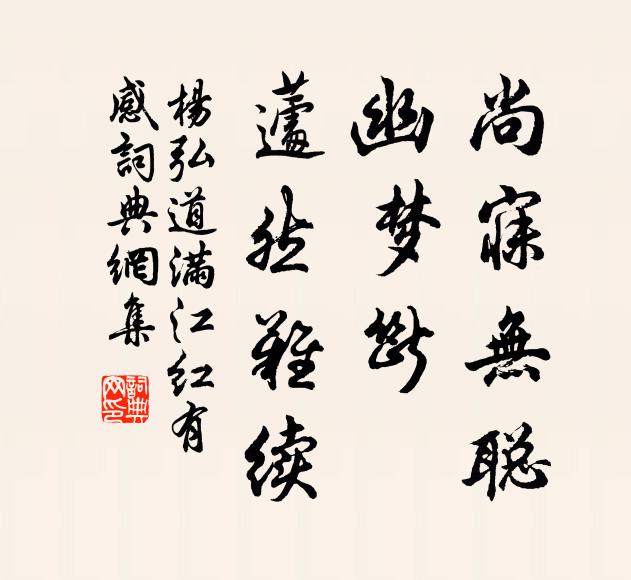 尚寐無聪
幽梦断
蘧然難续
楊弘道滿江红有
感詞典網集
詞典
网印